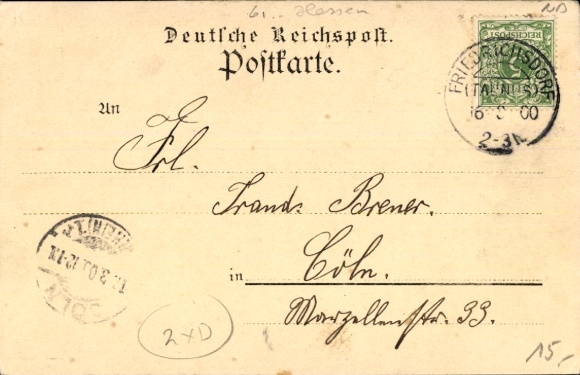 61.. Hessen
ND
Deutsche Reichspost.
Postkarte.
REICHSPOST
5
FRIEDRICHSDORF
(TAUNUS)
16 00
2-3N
An
Frl.
Brener.
in Cöln.
Marzellenstr. 33.
CÖLN
2xD
15,-